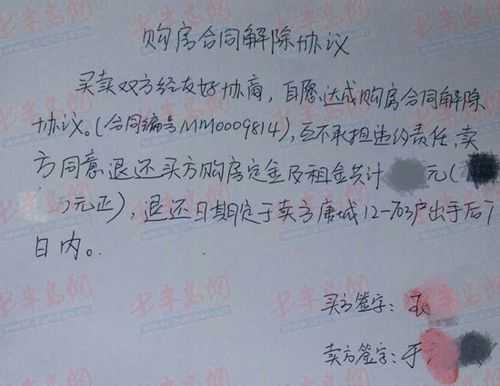 购房合同解除协议
买卖双方经友好协商，自愿达成购房合同解除
协议。(合同编号MM0009814)，互不承担违约责任，卖
方同意退还买方购房定金及租金共计 元(
元正)，退还日期定于卖方康城12-703户出手后7
日内。
买方签字：
卖方签字：于
半岛网